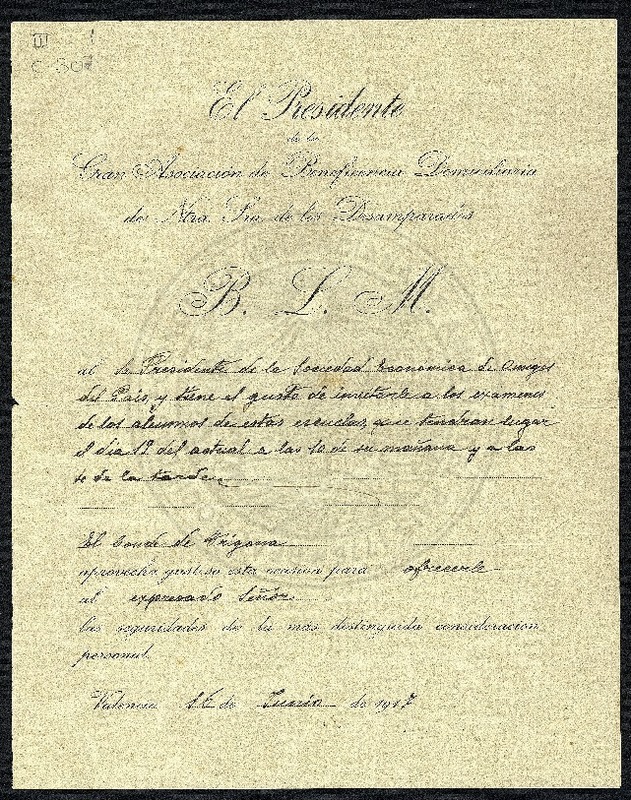 El Presidente
de la
Gran Asociación de Beneficencia Domiciliaria
de Ntra. Sra. de los Desamparados
B. L. M.
al Sr Presidente de la Sociedad Economica de Amigos
del Pais, y tiene el gusto de invitarle a los examenes
de los alumnos de estas escuelas, que tendran lugar
el dia 19 del actual a las 10 de su mañana y a las
de la tarde.
El Conde de Trigona
aprovecha gustoso esta ocasión para ofrecerle
al expresado Señor
las seguridades de la más distinguida consideración
personal.
Valencia 16 de Junio de 1917